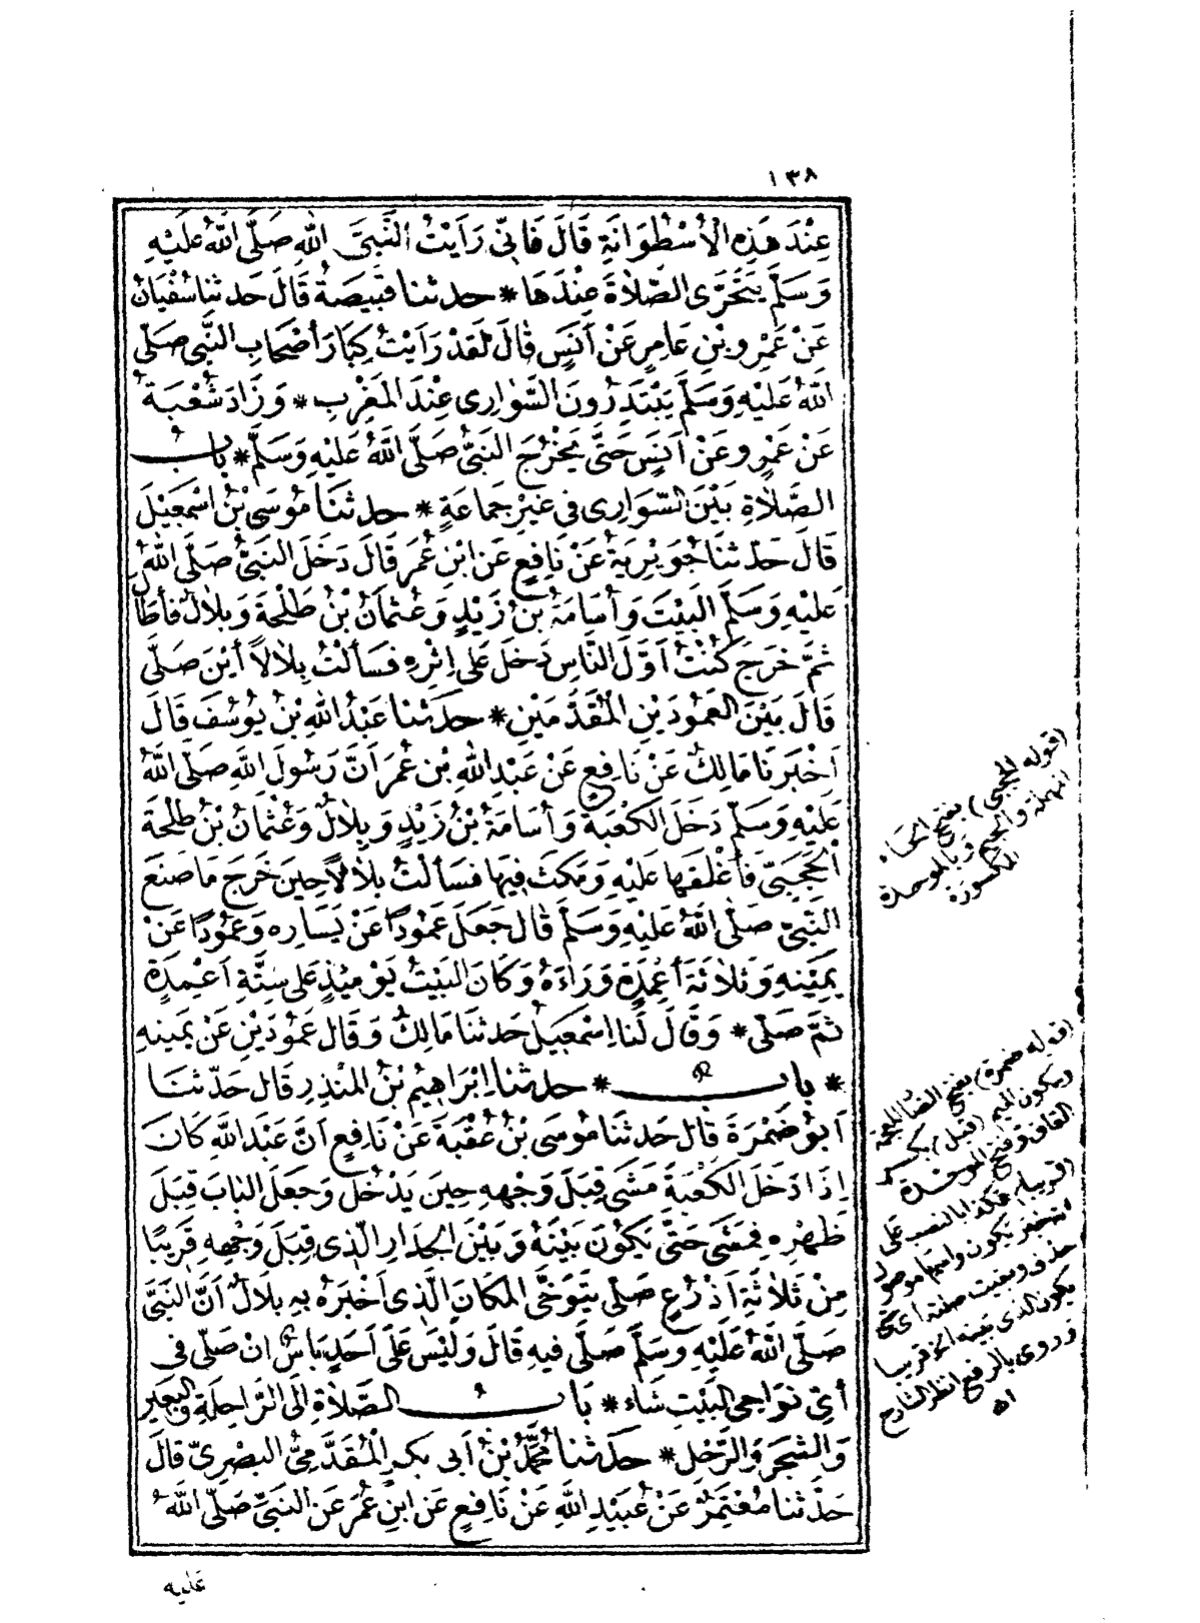 ١٣٨
عِنْدَ هَذِهِ الْأُسْطُوَانَةِ قَالَ فَاِنِّي رَاَيْتُ النَّبِيَّ اللهِ صَلَّى اللَّهُ عَلَيْهِ
وَسَلَّمَ يَتَحَرَّى الصَّلَاةَ عِنْدَهَا * حدثنا قَبِيصَةُ قَالَ حَدثنا سُفْيَانُ
عَنْ عَمْرِو بْنِ عَامِرٍ عَنْ اَنَسٍ قَالَ لَقَدْ رَاَيْتُ كِبَارَ أَصْحَابِ النَّبِيِّ صَلَّى
اللَّهُ عَلَيْهِ وَسَلَّمَ يَبْتَدِرُونَ السَّوَارِى عِنْدَ الْمَغْرِبِ * وَزَادَ شُعْبَةُ
عَنْ عَمْرٍو عَنْ اَنَسٍ حَتَّى يَخْرُجَ النَّبِىُّ صَلَّى اللَّهُ عَلَيْهِ وَسَلَّمَ * بابُ
الصَّلَاةِ بَيْنَ السَّوَارِى فِى غَيْرِ جَمَاعَةٍ * حدثنَا مُوسَى بْنُ اِسْمٰعِيْلَ
قَالَ حَدّثنَا جُوَيْرِيَةُ عَنْ نَافِعٍ عَنِ ابْنِ عُمَرَ قَالَ دَخَلَ النَّبِىُّ صَلَّى اللهُ
عَلَيْهِ وَسَلَّمَ الْبَيْتَ وَأُسَامَةُ بْنُ زَيْدٍ وَعُثْمَانُ بْنُ طَلْحَةَ وَبِلَالٌ فَأَطَالَ
ثُمَّ خَرَجَ كُنْتُ اَوَّلَ النَّاسِ دَخَلَ عَلَى اِثْرِهِ فَسَأَلْتُ بِلَالاً أَيْنَ صَلَّى
قَالَ بَيْنَ الْعَمُودَيْنِ الْمُقَدَّمَيْنِ * حَدَثنا عَبْدُ اللهِ بْنُ يُوسُفَ قَالَ
اَخْبَرَنَا مَالِكٌ عَنْ نَافِعٍ عَنْ عَبْدِ اللهِ بْنِ عُمَرَ اَنَّ رَسُولَ اللَّهِ صَلَّى اللَّهُ
عَلَيْهِ وَسَلَّمَ دَخَلَ الْكَعْبَةَ وَأُسَامَةُ بْنُ زَيْدٍ وَبِلَالٌ وَعُثْمَانُ بْنُ طَلْحَةَ
الْحَجَبِىُّ فَأَغْلَقَهَا عَلَيْهِ وَمَكَثَ فِيهَا فَسَأَلْتُ بِلَالاً حِينَ خَرَجَ مَا صَنَعَ
النَّبِىُّ صَلَّى اللَّهُ عَلَيْهِ وَسَلَّمَ قَالَ جَعَلَ عَمُودًا عَنْ يَسَارِهِ وَعَمُودًا عَنْ
يَمِينِهِ وَثَلَاثَةَ أَعْمِدَةٍ وَرَاءَهُ وَكَانَ الْبَيْتُ يَوْمَئِذٍ عَلَى سِتَّةِ اَعْمِدَةٍ
ثُمَّ صَلَّى * وَقَالَ لَنَا اِسْمٰعِيلُ حَدثنَا مَالِكٌ وَقَالَ عَمُودَيْنِ عَنْ يَمِينِهِ
* بابٌ * حدثنا اِبْرَاهِيمُ بْنُ الْمُنْذِرِ قَالَ حَدّثنَا
اَبُو ضَمْرَةَ قَالَ حَدثنَا مُوسَى بْنُ عُقْبَةَ عَنْ نَافِعٍ اَنَّ عَبْدَ اللَّهِ كَانَ
اِذَا دَخَلَ الْكَعْبَةَ مَشَى قِبَلَ وَجْهِهِ حِينَ يَدْخُلُ وَجَعَلَ الْبَابَ قِبَلَ
ظَهْرِهِ فَمَشَى حَتَّى يَكُونَ بَيْنَهُ وَبَيْنَ الْجِدَارِ الَّذِى قِبَلَ وَجْهِهِ قَرِيبًا
مِنْ ثَلَاثَةِ اَذْرُعٍ صَلَّى يَتَوَخَّى الْمَكَانَ الَّذِى اَخْبَرَهُ بِهِ بِلَالٌ اَنَّ النَّبِىَّ
صَلَّى اللَّهُ عَلَيْهِ وَسَلَّمَ صَلَّى فِيهِ قَالَ وَلَيْسَ عَلَى اَحَدٍ بَاْسٌ اِنْ صَلَّى فِى
أَىِّ نَوَاحِى الْبَيْتِ شَاءَ * بَابُ الصَّلَاةِ اِلَى الرَّاحِلَةِ وَالْبَعِيرِ
وَالشَّجَرِ وَالرَّحْلِ * حَدَثنا مُحَمَّدُ بْنُ اَبِى بَكْرٍ الْمُقَدَّمِىُّ الْبَصْرِىُّ قَالَ
حَدّثنا مُعْتَمِرٌ عَنْ عُبَيْدِ اللَّهِ عَنْ نَافِعٍ عَنِ ابْنِ عُمَرَ عَنِ النَّبِىِّ صَلَّى اللَّهُ
عليه
(قوله الحجبى) بفتح الحاء
المهملة والجيم وبالموحدة
المكسورة
(قوله ضمرة) بفتح الضاد المعجمة
وسكون الميم (قبل) بكسر
القاف وفتح الموحدة
(قريبا) هكذا بالنصب على
انه خبر يكون واسمها موصول
حذف وبقيت صلته اى حتى
يكون الذى بينه الخ قريبا
وروى بالرفع انظر الشارح
اه